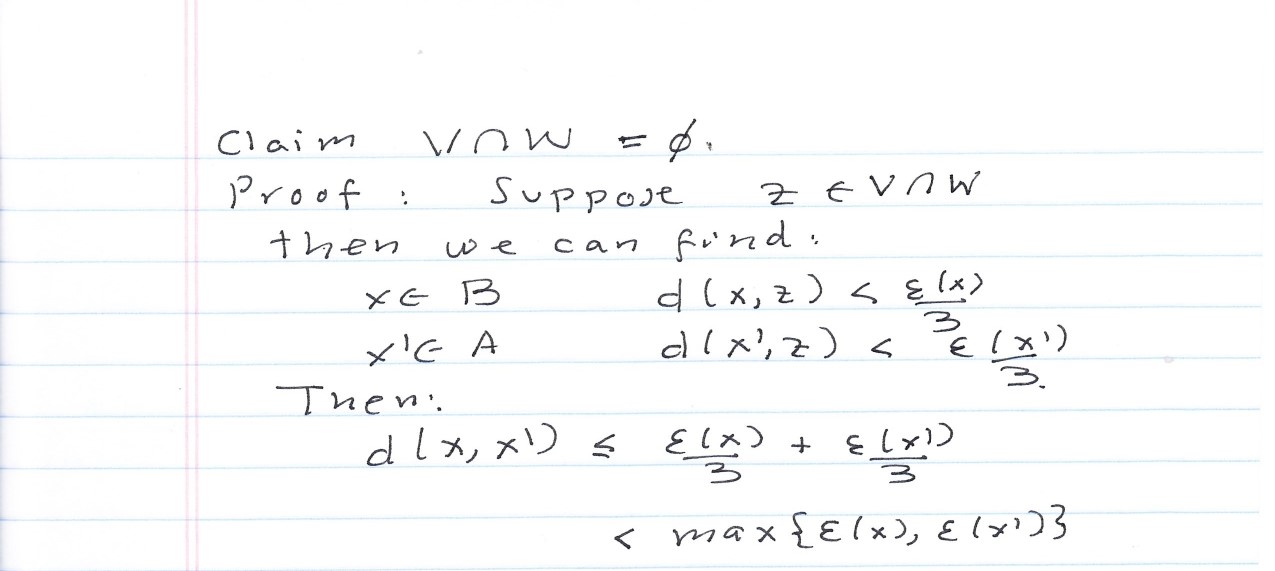 Claim V∩W = ∅.
Proof: Suppose z ∈ V∩W
then we can find:
x ∈ B d(x, z) < ε(x)/3
x' ∈ A d(x', z) < ε(x')/3.
Then:
d(x, x') ≤ ε(x)/3 + ε(x')/3
< max{ε(x), ε(x')}